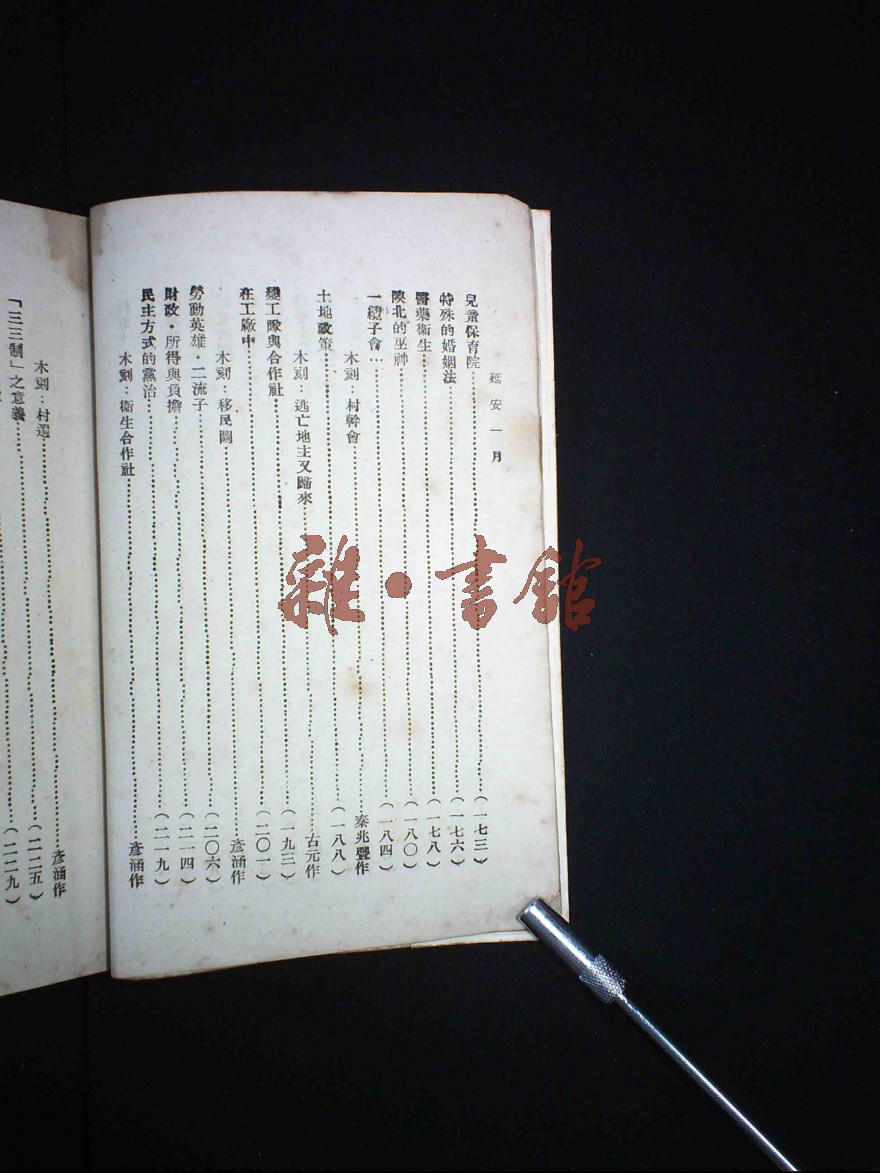 延安一月
兒童保育院……(一七三)
特殊的婚姻法……(一七六)
醫藥衞生……(一七八)
陝北的巫神……(一八〇)
一攬子會……(一八四)
木刻：村幹會……秦兆豐作
土地政策……(一八八)
木刻：逃亡地主又歸來……古元作
變工隊與合作社……(一九三)
在工廠中……(二〇一)
木刻：移民圖……彥涵作
勞動英雄·二流子……(二〇六)
財政·所得與負擔……(二一四)
民主方式的黨治……(二一九)
木刻：衞生合作社……彥涵作
木刻：村選……彥涵作
「三三制」之意義……(二二五)
(二二九)
雜·書館